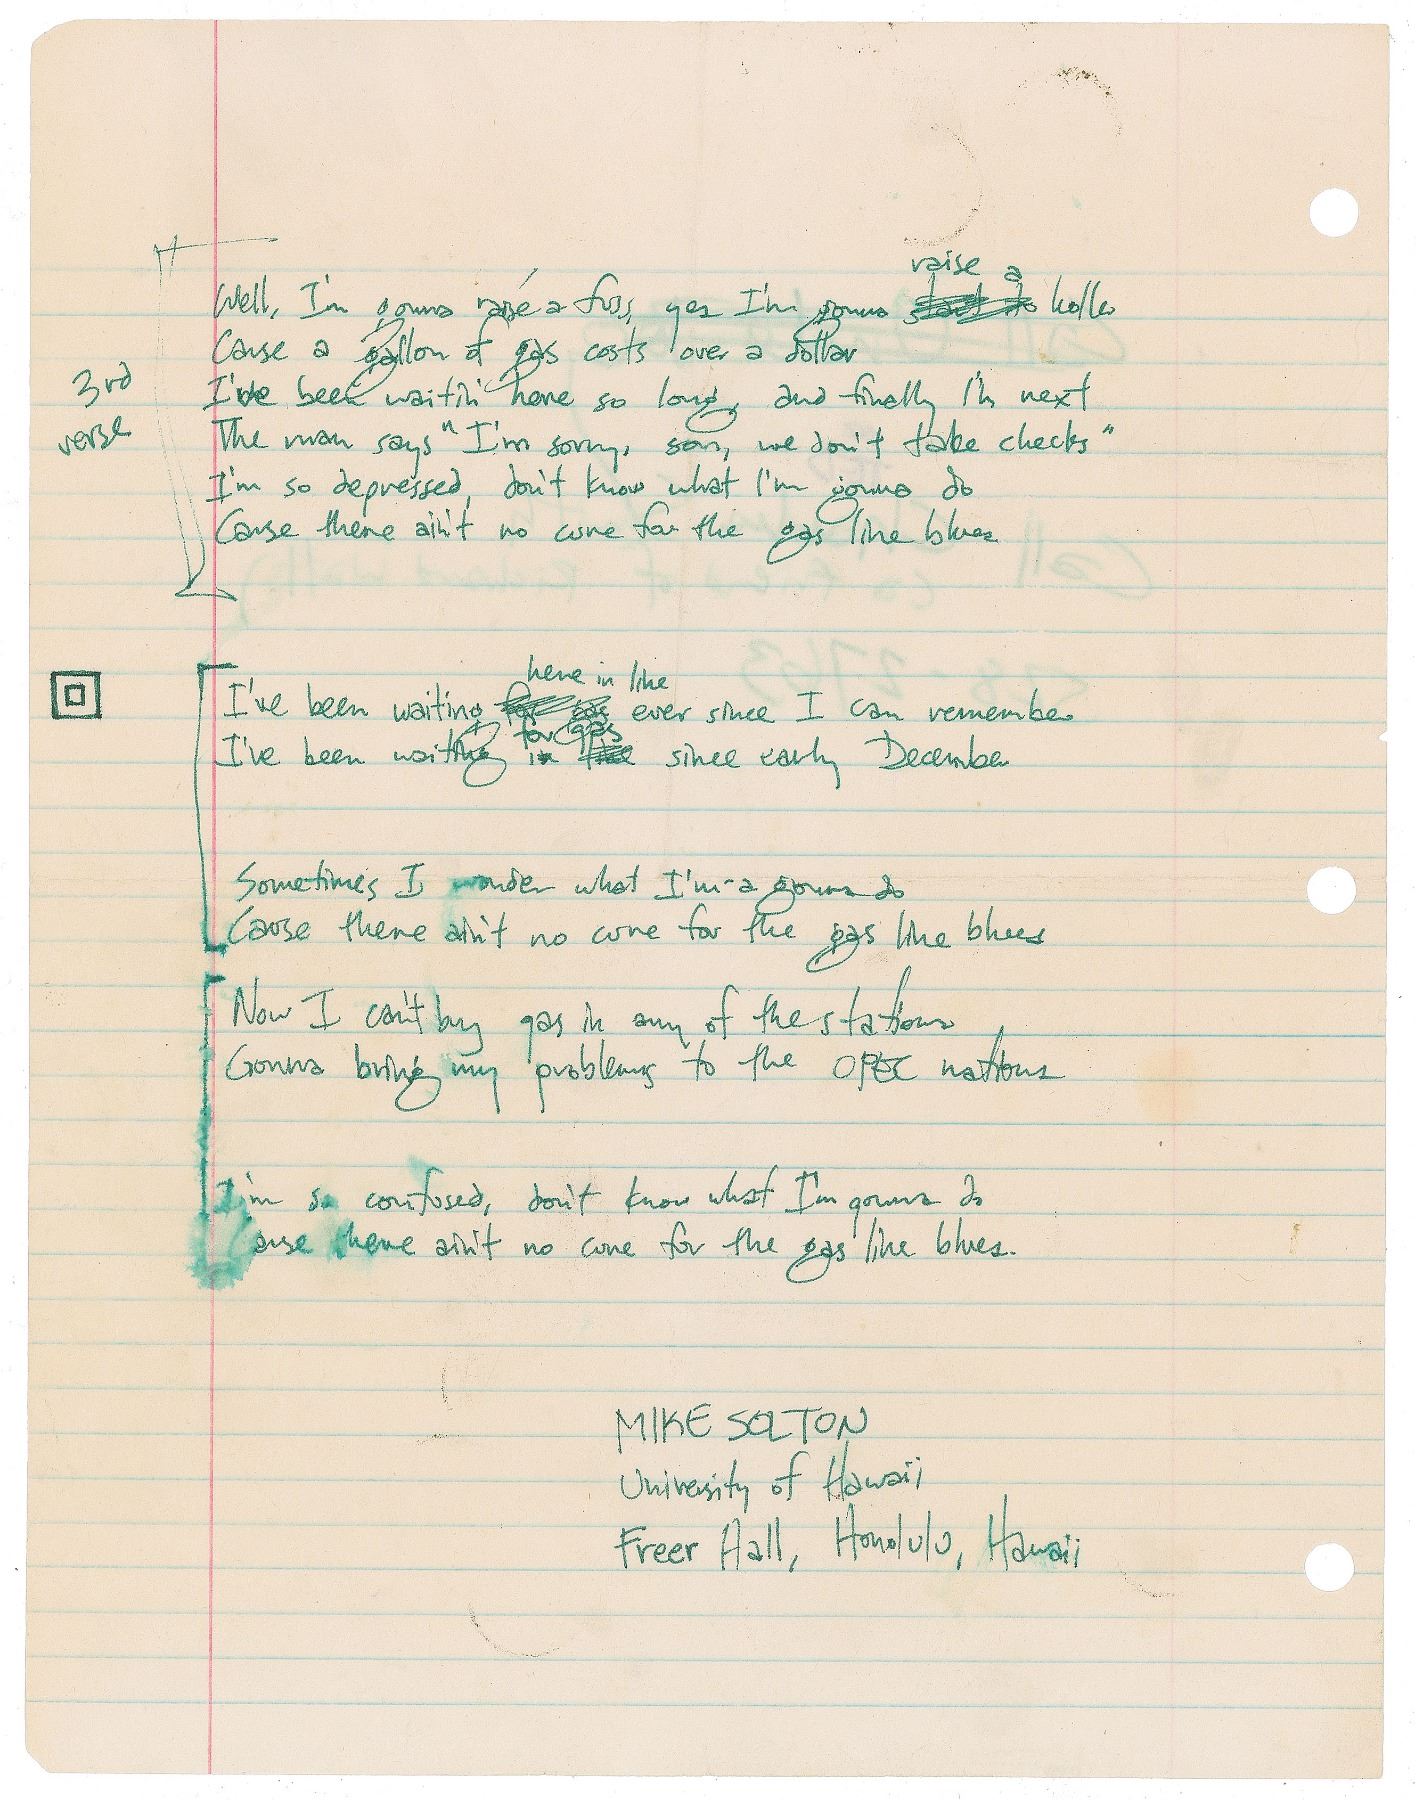 raise a
Well, I'm gonna raise a fuss, yes I'm gonna start to holler
Cause a gallon of gas costs over a dollar
I've been waitin' here so long, and finally I'm next
3rd
verse
The man says "I'm sorry, son, we don't take checks"
I'm so depressed, don't know what I'm gonna do
Cause there ain't no cure for the gas line blues
here in line
I've been waiting for gas ever since I can remember
for gas
I've been waiting in line since early December
Sometimes I wonder what I'm-a gonna do
Cause there ain't no cure for the gas line blues
Now I can't buy gas in any of the stations
Gonna bring my problems to the OPEC nations
I'm so confused, don't know what I'm gonna do
Cause there ain't no cure for the gas line blues.
MIKE SOLTON
University of Hawaii
Freer Hall, Honolulu, Hawaii